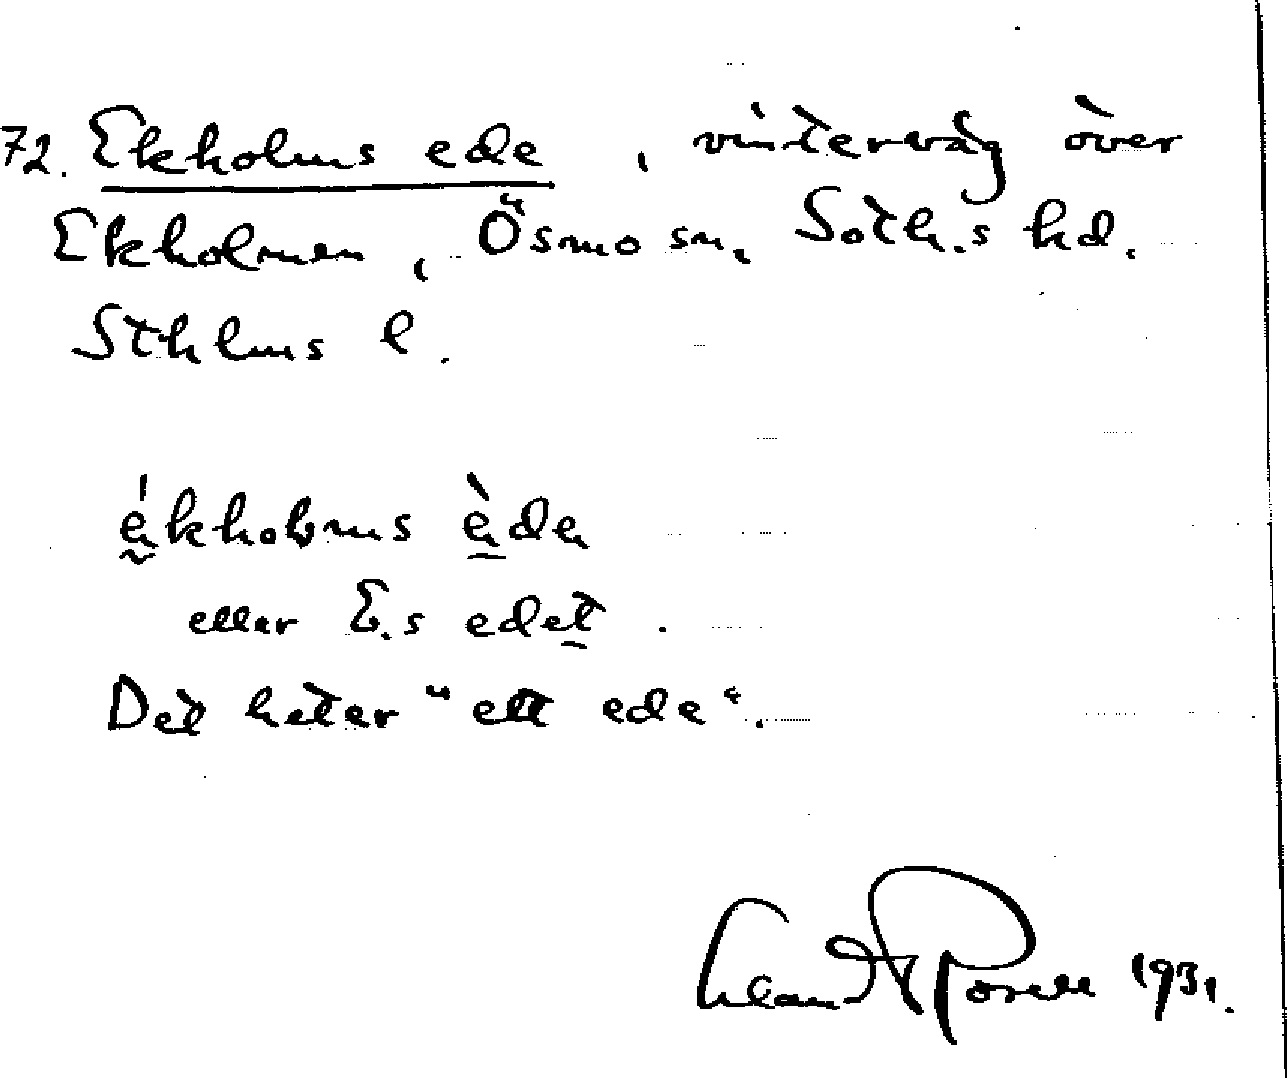 72. Ekholms ede, vinterväg över
Ekholmen, Ösmo sn, Soth.s hd.
Sthlms l.
ékholms ède
eller E.s edet.
Det heter "ett ede".
1931.